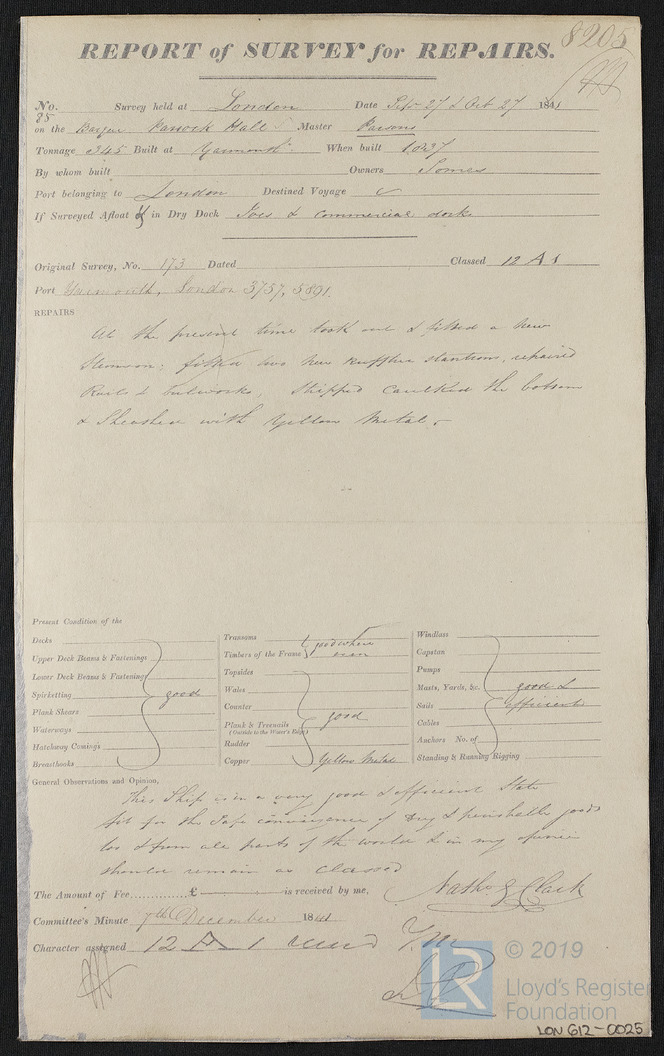 8205
REPORT of SURVEY for REPAIRS.
No. 25 Survey held at London Date Sepr 27 & Oct 27 1841
on the Barque Hall Master Parsons
Tonnage 345 Built at Yarmouth When built 1837
By whom built Owners Somes
Port belonging to London Destined Voyage
If Surveyed Afloat & in Dry Dock & commercial dock
Original Survey, No. 173 Dated Classed 12 A 1
Port Yarmouth, London 3757, 5891.
REPAIRS
At the present time took out & fitted a New
fitted two New stantions, repaired
Rails & bulworks, Stripped Caulked the bottom
& Sheathed with Yellow Metal.
Present Condition of the
Decks
Upper Deck Beams & Fastenings
Lower Deck Beams & Fastenings
Spirketting good
Plank Shears
Waterways
Hatchway Comings
Breasthooks
Transoms good where
Timbers of the Frame seen
Topsides
Wales
Counter
Plank & Treenails good
(Outside to the Water's Edge)
Rudder
Copper Yellow Metal
Windlass
Capstan
Pumps
Masts, Yards, &c. good &
Sails Efficient
Cables
Anchors No. of
Standing & Running Rigging
General Observations and Opinion,
This Ship is in a very good & efficient State
fit for the Safe conveyance of Dry & perishable goods
to & from all parts of the world & in my opinion
should remain as Classed
The Amount of Fee............£ is received by me,
Nathl G Clark
Committee's Minute 7th December 1841
Character assigned 12 A 1
© 2019
LR
Lloyd's Register
Foundation
LON 612-0025